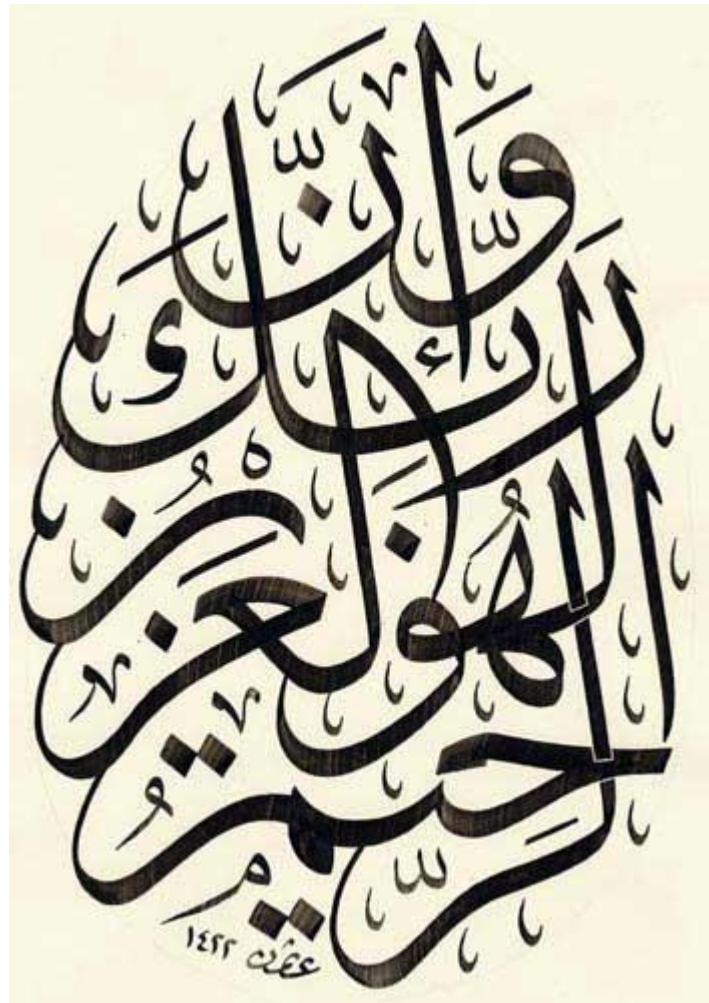 وَإِنَّ رَبَّكَ
لَهُوَ الْعَزِيزُ
الرَّحِيمُ
عثمان ١٤٢٢